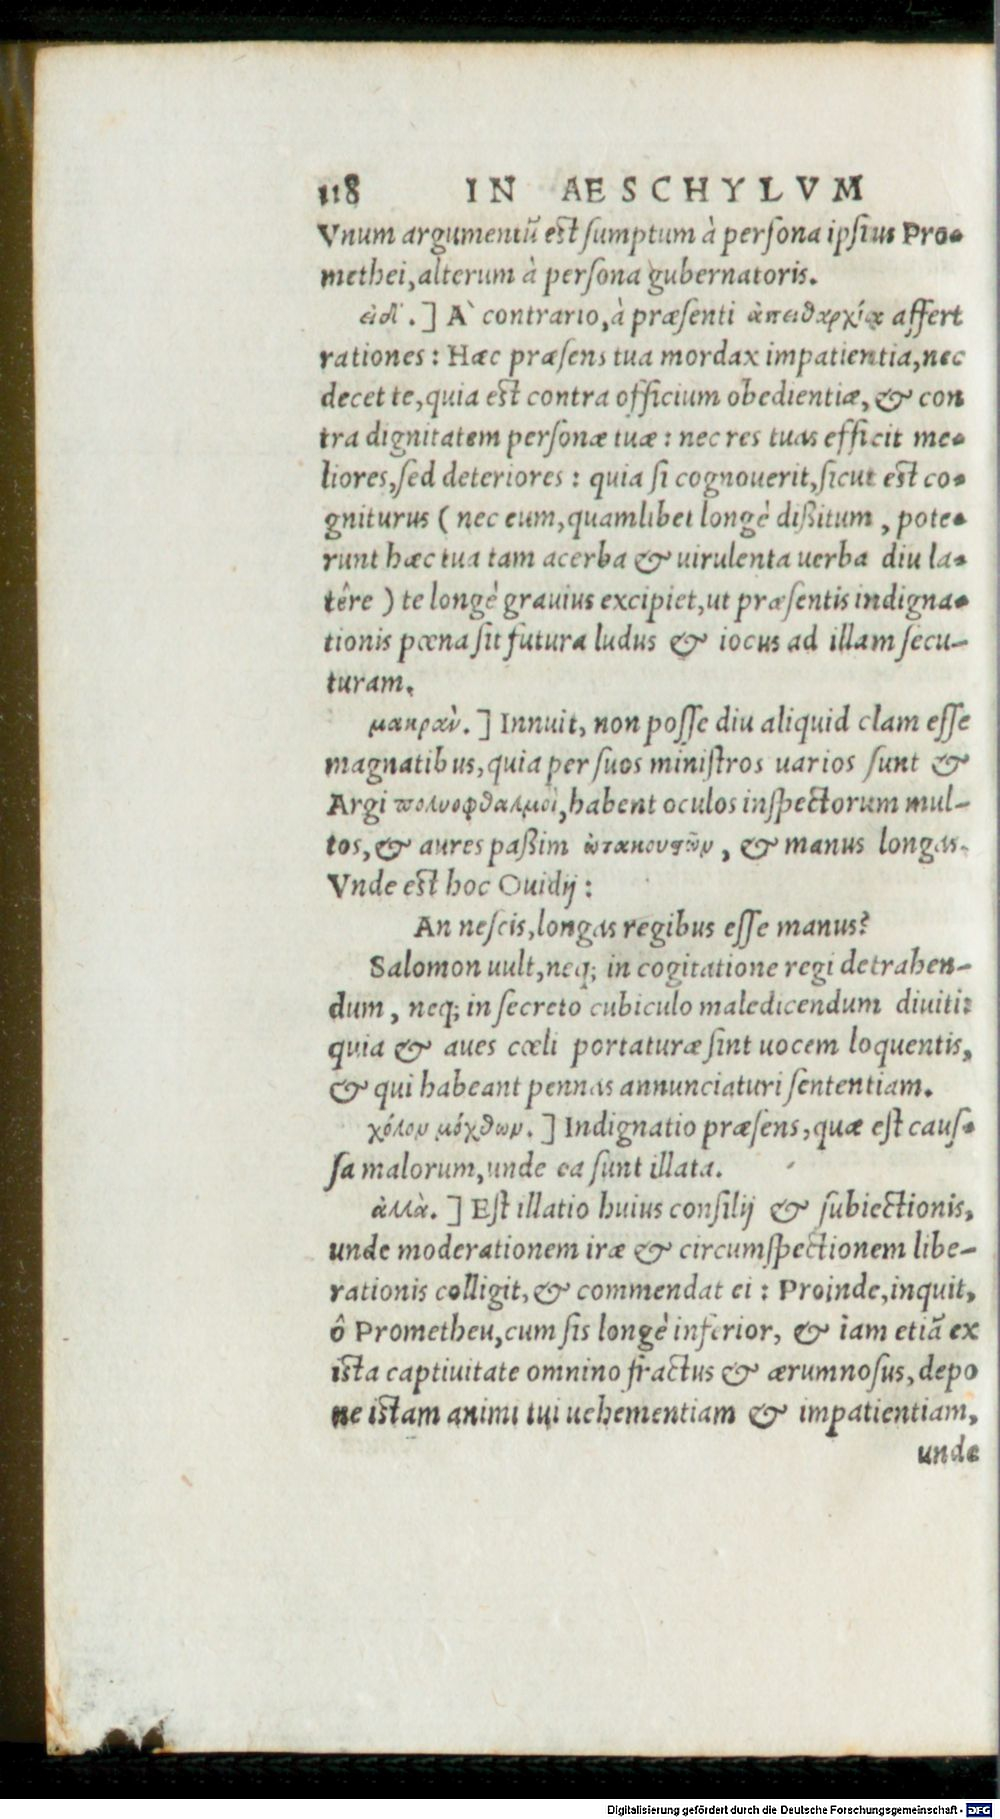 118 IN AESCHYLVM
Vnum argumentũ est sumptum à persona ipsius Pro-
methei, alterum à persona gubernatoris.
εἰ δ᾽.] A` contrario, à præsenti ἀπειθαρχίᾳ affert
rationes: Hæc præsens tua mordax impatientia, nec
decet te, quia est contra officium obedientiæ, & con
tra dignitatem personæ tuæ: nec res tuas efficit me-
liores, sed deteriores: quia si cognouerit, sicut est co-
gniturus (nec eum, quamlibet longè dißitum, pote-
runt hæc tua tam acerba & uirulenta uerba diu la-
têre) te longè grauius excipiet, ut præsentis indigna-
tionis pœna sit futura ludus & iocus ad illam secu-
turam.
μακρὰν.] Innuit, non posse diu aliquid clam esse
magnatibus, quia per suos ministros uarios sunt &
Argi πολυοφθαλμοὶ, habent oculos inspectorum mul-
tos, & aures paßim ὠτακουστῶν, & manus longas.
Vnde est hoc Ouidij:
An nescis, longas regibus esse manus?
Salomon uult, neq; in cogitatione regi detrahen-
dum, neq; in secreto cubiculo maledicendum diuiti:
quia & aues cœli portaturæ sint uocem loquentis,
& qui habeant pennas annunciaturi sententiam.
χόλον μόχθων.] Indignatio præsens, quæ est caus-
sa malorum, unde ea sunt illata.
ἀλλὰ.] Est illatio huius consilij & subiectionis,
unde moderationem iræ & circumspectionem libe-
rationis colligit, & commendat ei: Proinde, inquit,
ô Prometheu, cum sis longè inferior, & iam etiã ex
ista captiuitate omnino fractus & ærumnosus, depo
ne istam animi tui uehementiam & impatientiam,
unde
Digitalisierung gefördert durch die Deutsche Forschungsgemeinschaft - DFG